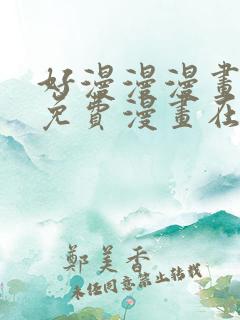 好漫漫漫畫
免費漫畫在
鄭美香
未经同意禁止转载